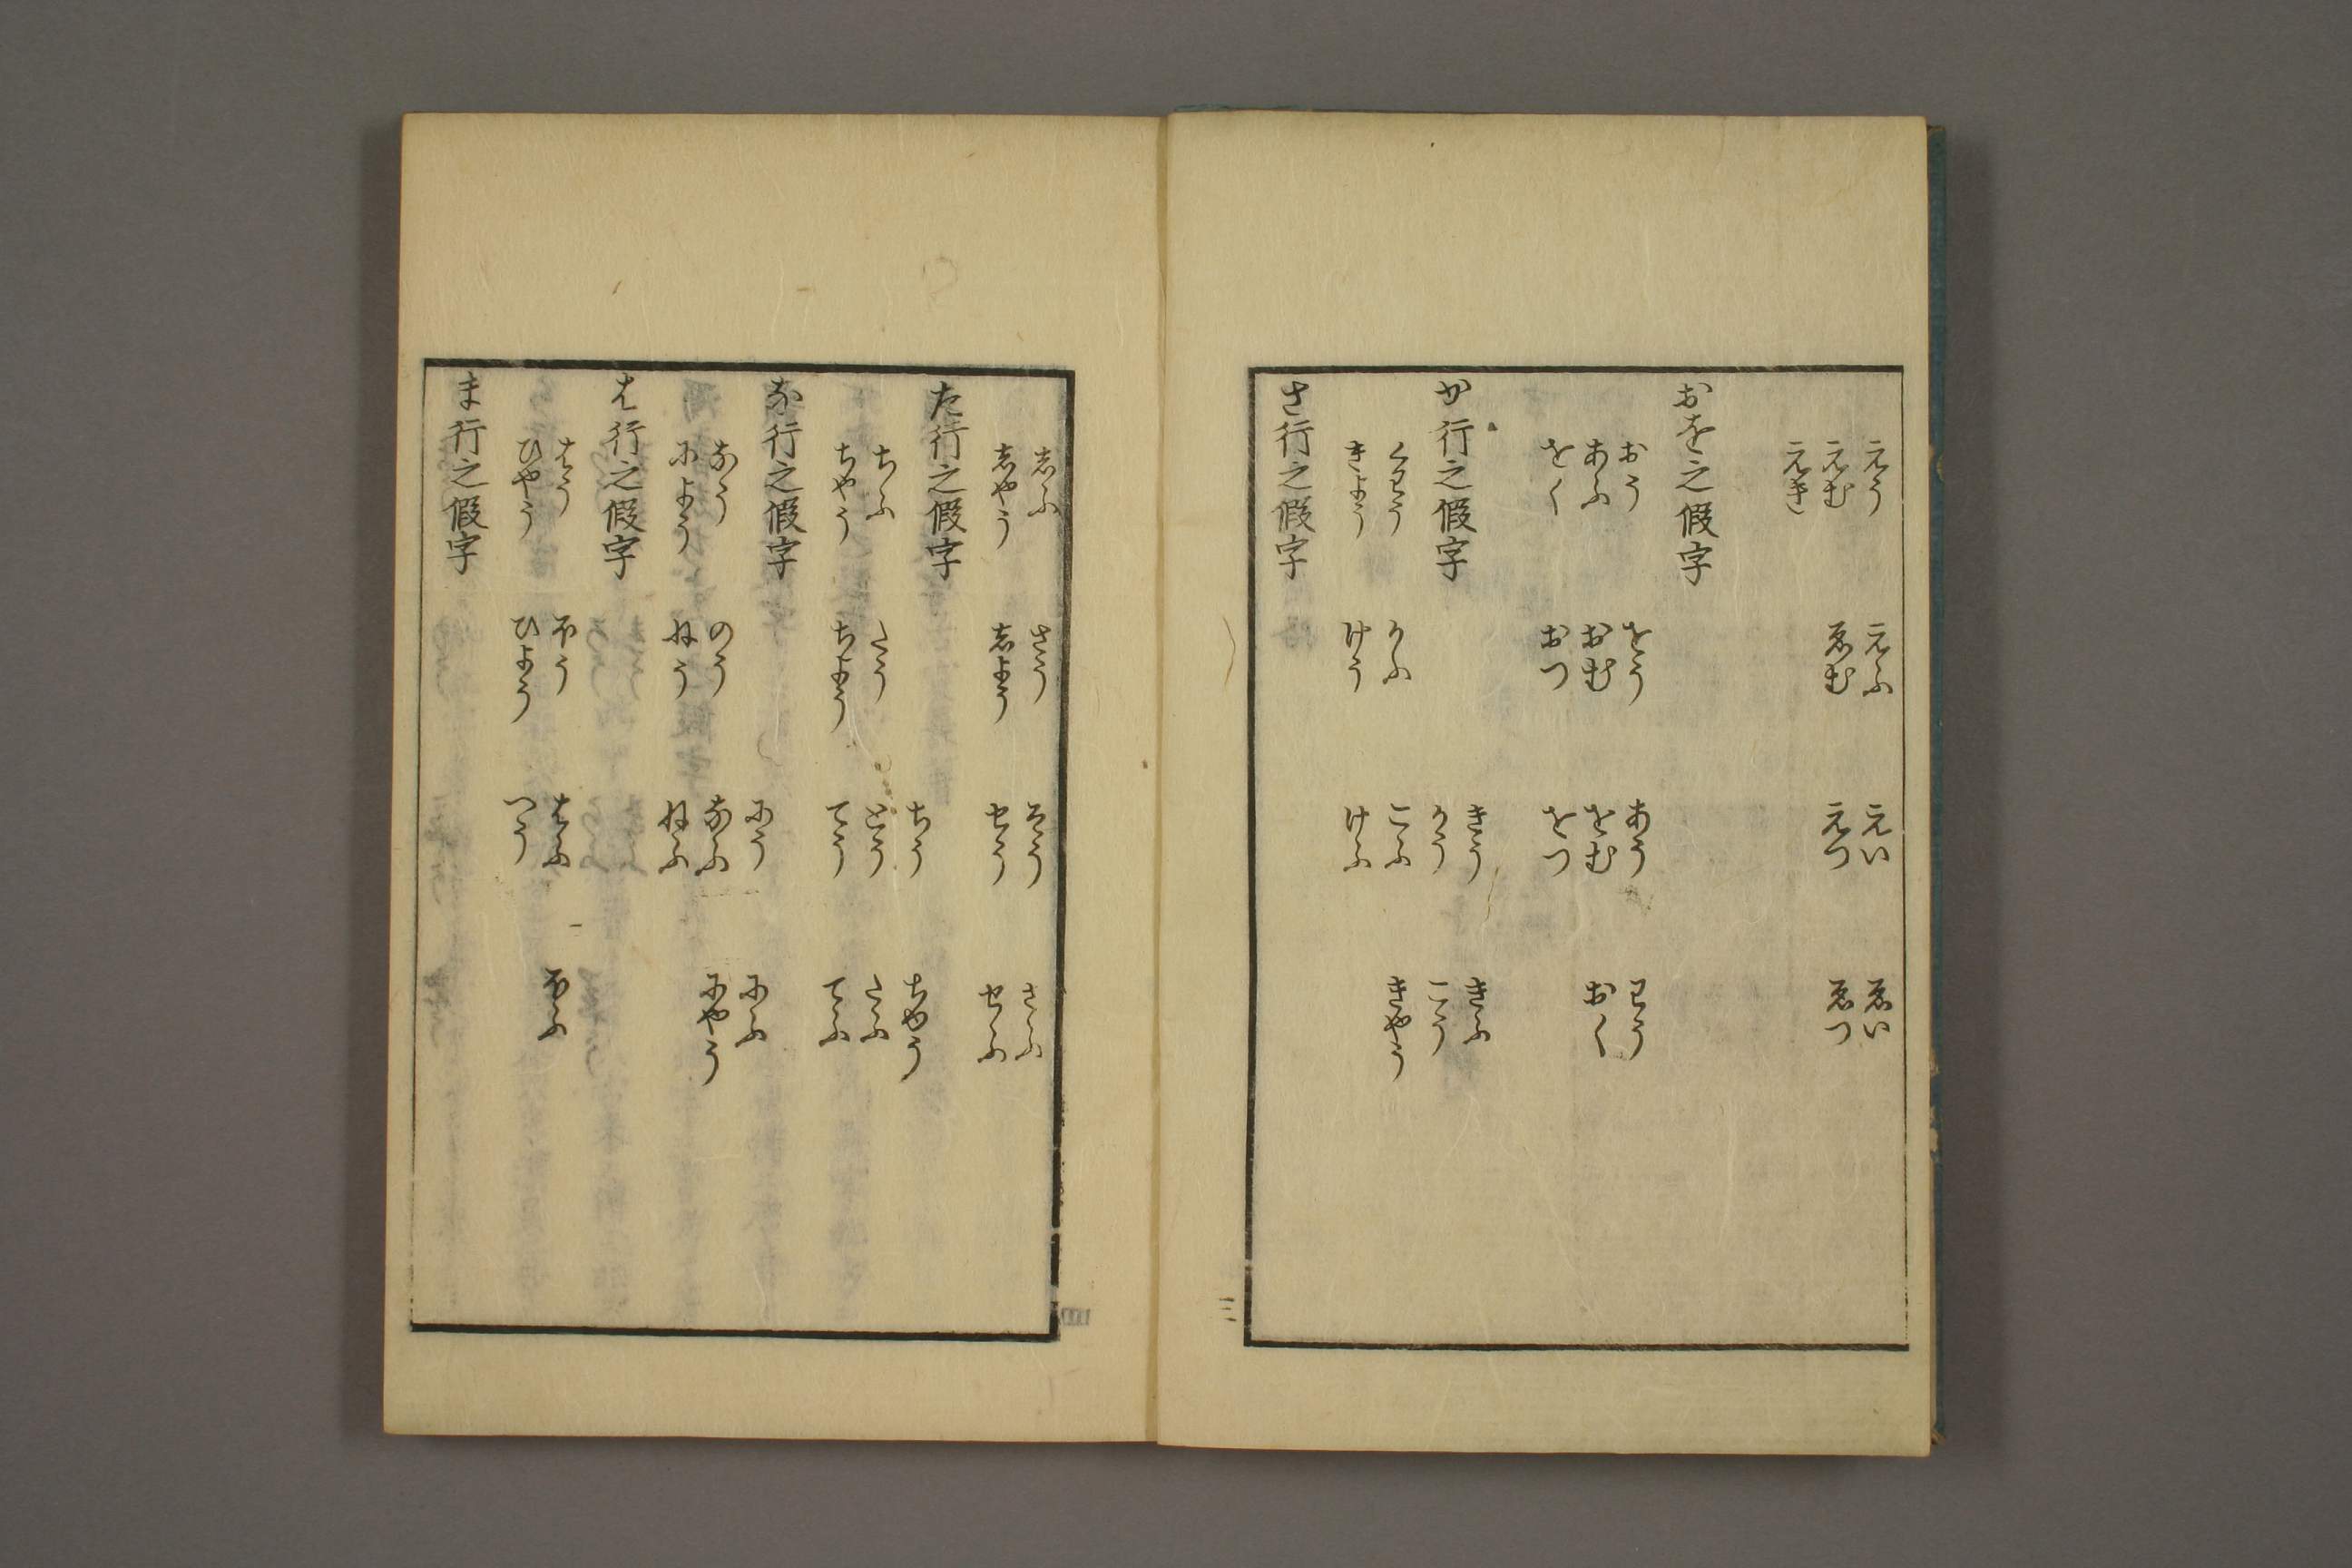 えう えふ えい ゑい
えむ ゑむ えつ ゑつ
えき
おを之假字
おう をう あう わう
あふ おむ をむ おく
をく おつ をつ
か行之假字
きう きふ
かう こう
くわう かふ こふ きやう
きよう けう けふ
さ行之假字
三
しふ さう そう さふ
しやう しよう せう せふ
た行之假字
ちう ちゆう
ちふ たう とう たふ
ちやう ちよう てう てふ
な行之假字
にう にふ
なう のう なふ にやう
によう ねう ねふ
は行之假字
はう ほう はふ ほふ
ひやう ひよう へう
ま行之假字